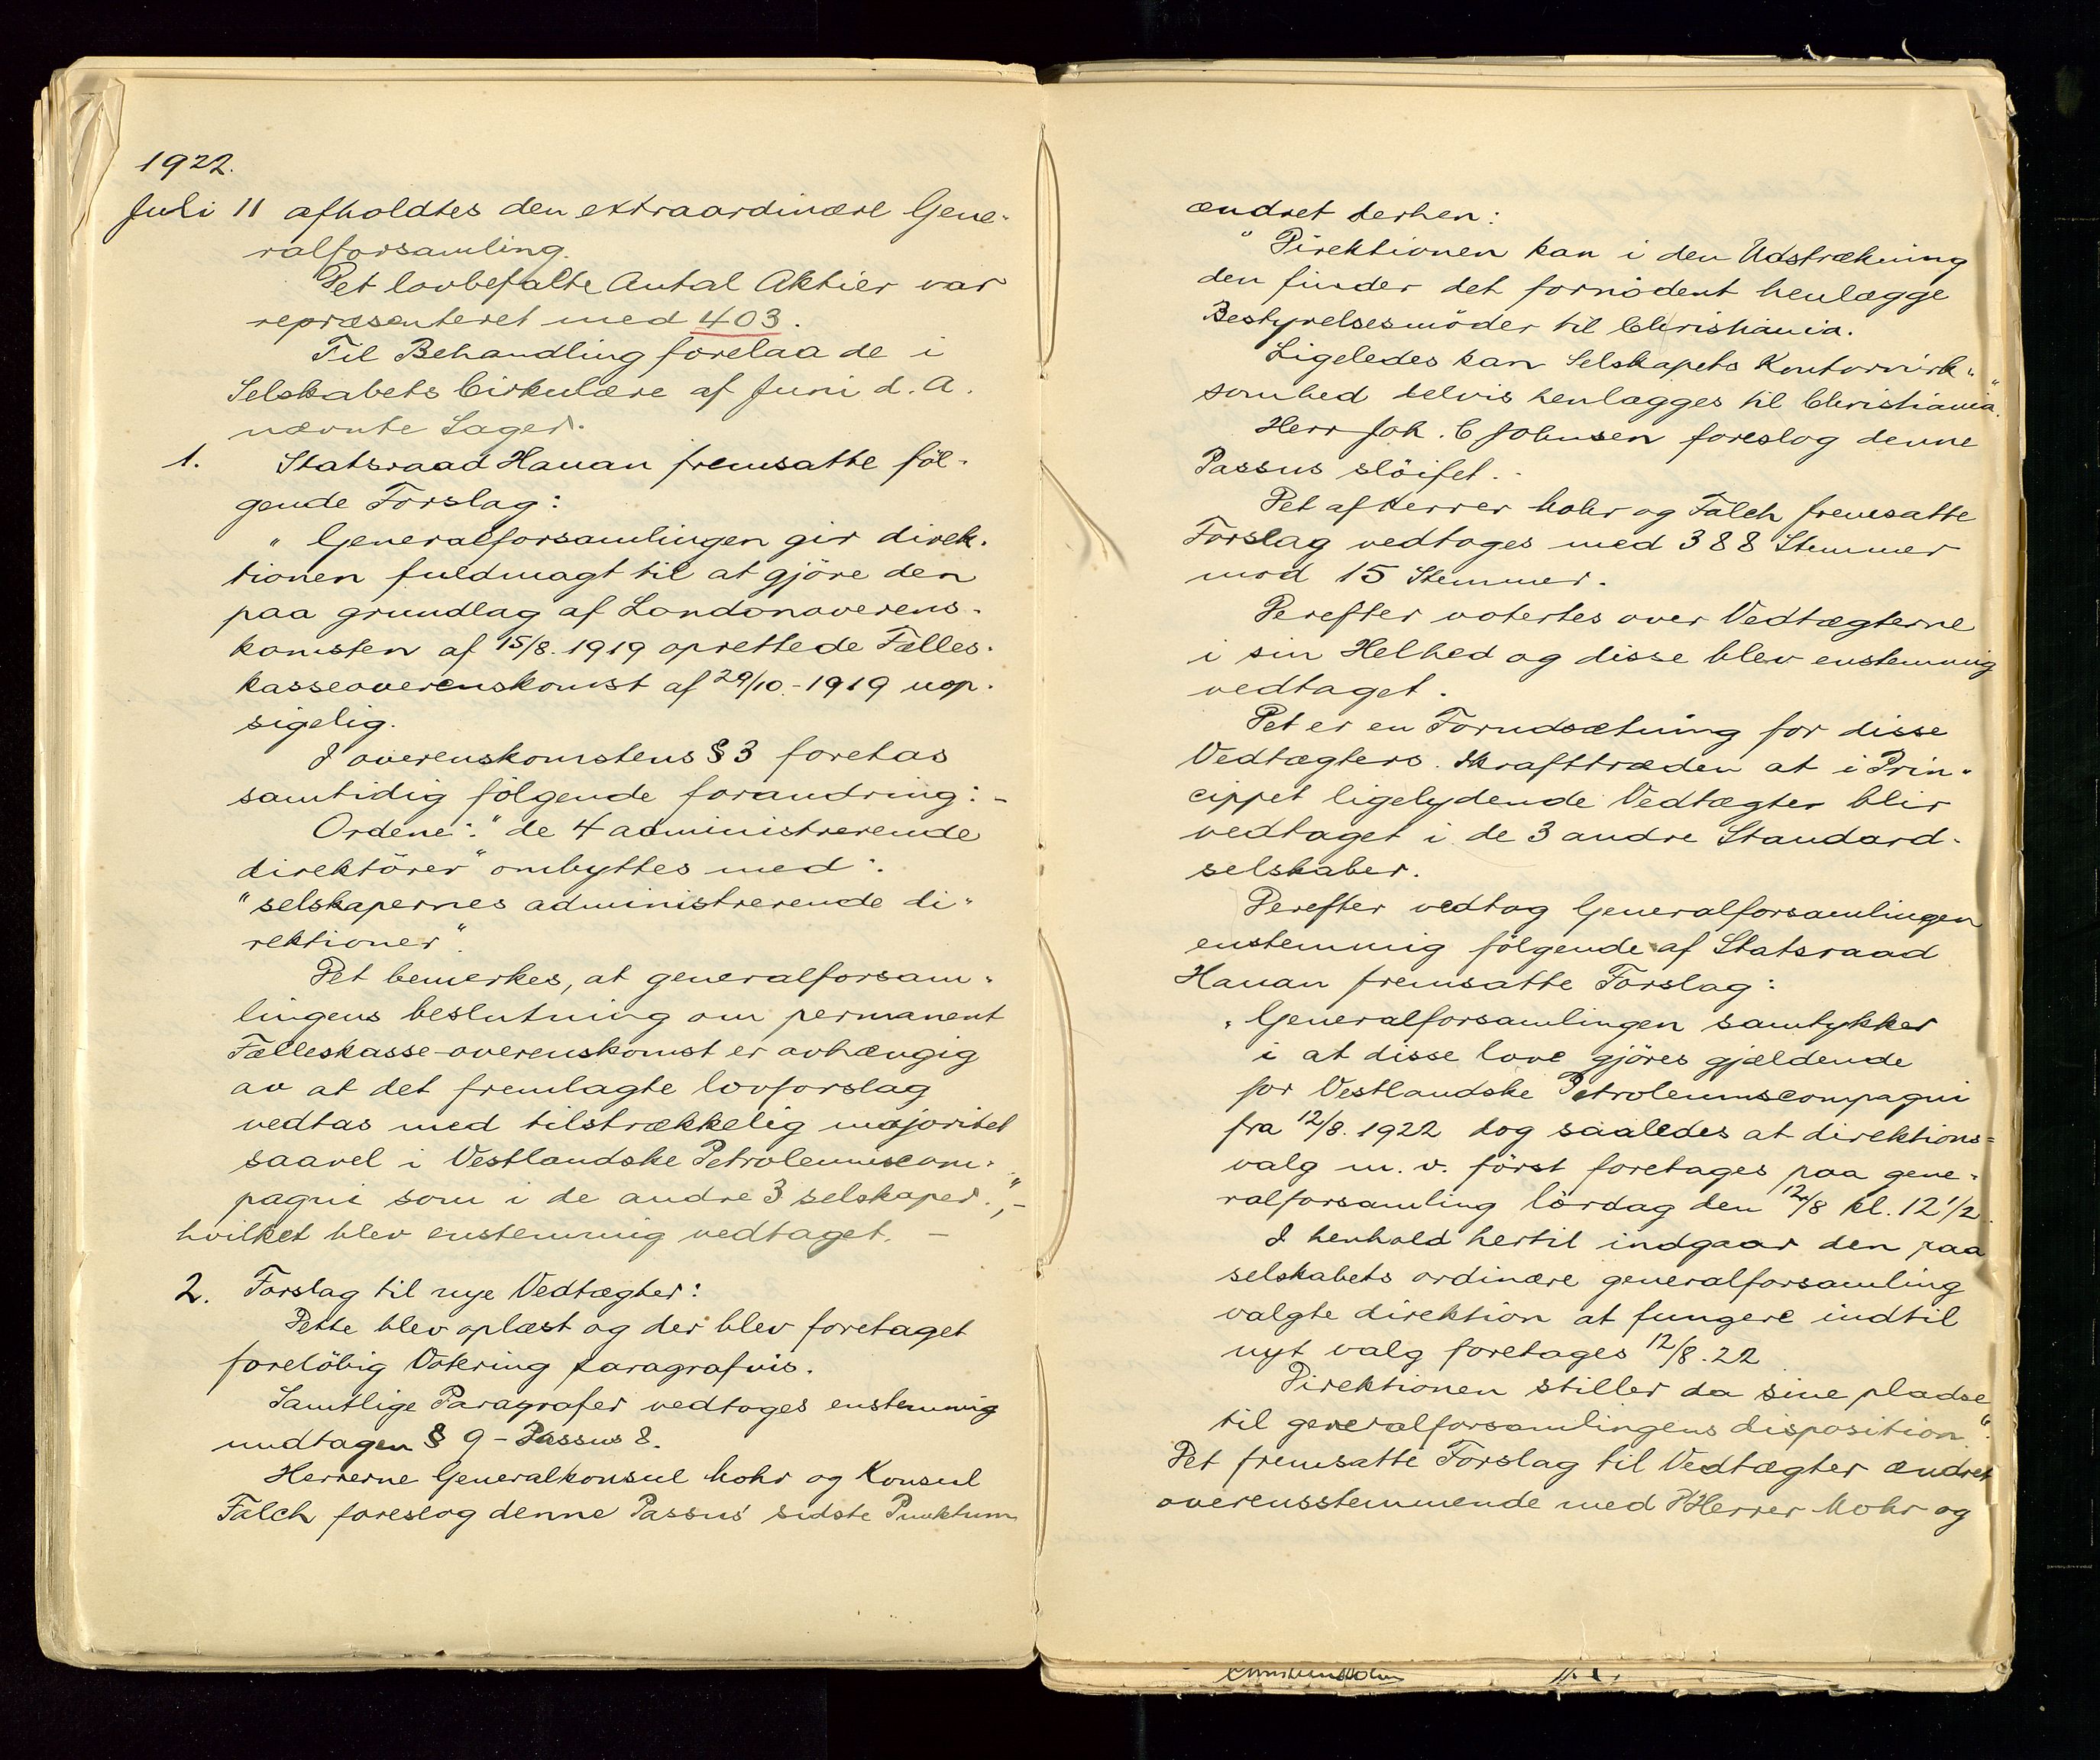 1922.
Juli 11 afholdtes den extraordinære Gene-
ralforsamling.
Det lovbefalte Antal Aktier var
repræsenteret med 403.
Til Behandling forelaa de i
Selskabets Cirkulære af Juni d. A.
nævnte Sager.
1. Statsraad Hauan fremsatte föl-
gende Forslag:
"Generalforsamlingen gir direk-
tionen fuldmagt til at gjöre den
paa grundlag af Londonoverens-
komsten af 15/8. 1919 oprettede Fælles-
kasseoverenskomst af 29/10.-1919 uop-
sigelig.
I overenskomstens § 3 foretas
samtidig fölgende forandring: -
Ordene: "de 4 administrerende
direktörer" ombyttes med:
"selskapernes administrerende di-
rektioner".
Det bemerkes, at generalforsam-
lingens beslutning om permanent
Fælleskasse-overenskomst er avhængig
av at det fremlagte lovforslag
vedtas med tilstrækkelig majoritet
saavel i Vestlandske Petroleumscom-
pagni som i de andre 3 selskaper.", -
hvilket blev enstemmig vedtaget. -
2. Forslag til nye Vedtægter:
Dette blev oplæst og der blev foretaget
forelöbig Votering paragrafvis.
Samtlige Paragrafer vedtoges enstemmig
undtagen § 9 - Passus 8.
Herrerne Generalkonsul Mohr og Konsul
Falch foreslog denne Passus' sidste Punktum
ændret derhen:
"Direktionen kan i den Udstrækning
den finder det fornödent henlægge
Bestyrelsesmöder til Christiania.
Ligeledes kan Selskapets Kontorvirk-
somhed delvis henlægges til Christiania."
Herr Joh. C Johnsen foreslog denne
Passus slöifet. -
Det af Herrer Mohr og Falch fremsatte
Forslag vedtoges med 388 Stemmer
mod 15 Stemmer.
Derefter votertes over Vedtægterne
i sin Helhed og disse blev enstemmig
vedtaget.
Det er en Forudsætning for disse
Vedtægters Ikrafttræden at i Prin-
cippet ligelydende Vedtægter blir
vedtaget i de 3 andre Standard-
selskaber.
Derefter vedtog Generalforsamlingen
enstemmig fölgende af Statsraad
Hauan fremsatte Forslag:
"Generalforsamlingen samtykker
i at disse love gjöres gjældende
for Vestlandske Petroleumscompagni
fra 12/8. 1922 dog saaledes at direktions-
valg m. v. först foretages paa gene-
ralforsamling lördag den 12/8 kl. 12 1/2.
I henhold hertil indgaar den paa
selskabets ordinære generalforsamling
valgte direktion at fungere indtil
nyt valg foretages 12/8. 22
Direktionen stiller da sine pladse
til generalforsamlingens disposition."
Det fremsatte Forslag til Vedtægter ændret
overensstemmende med Herrer Mohr og